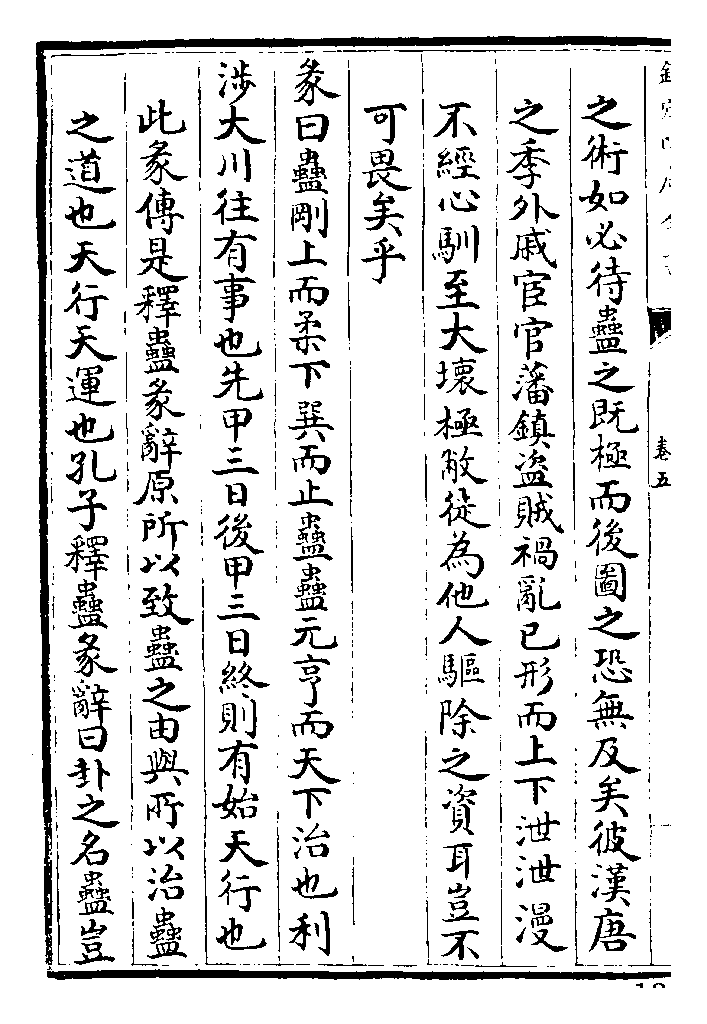 卷五
之術如必待蠱之既極而後圖之恐無及矣彼漢唐
之季外戚宦官藩鎮盜賊禍亂已形而上下泄泄漫
不經心馴至大壞極敝徒為他人驅除之資耳豈不
可畏矣乎
彖曰蠱剛上而柔下巽而止蠱蠱元亨而天下治也利
涉大川往有事也先甲三日後甲三日終則有始天行也
此彖傳是釋蠱彖辭原所以致蠱之由與所以治蠱
之道也天行天運也孔子釋蠱彖辭曰卦之名蠱豈